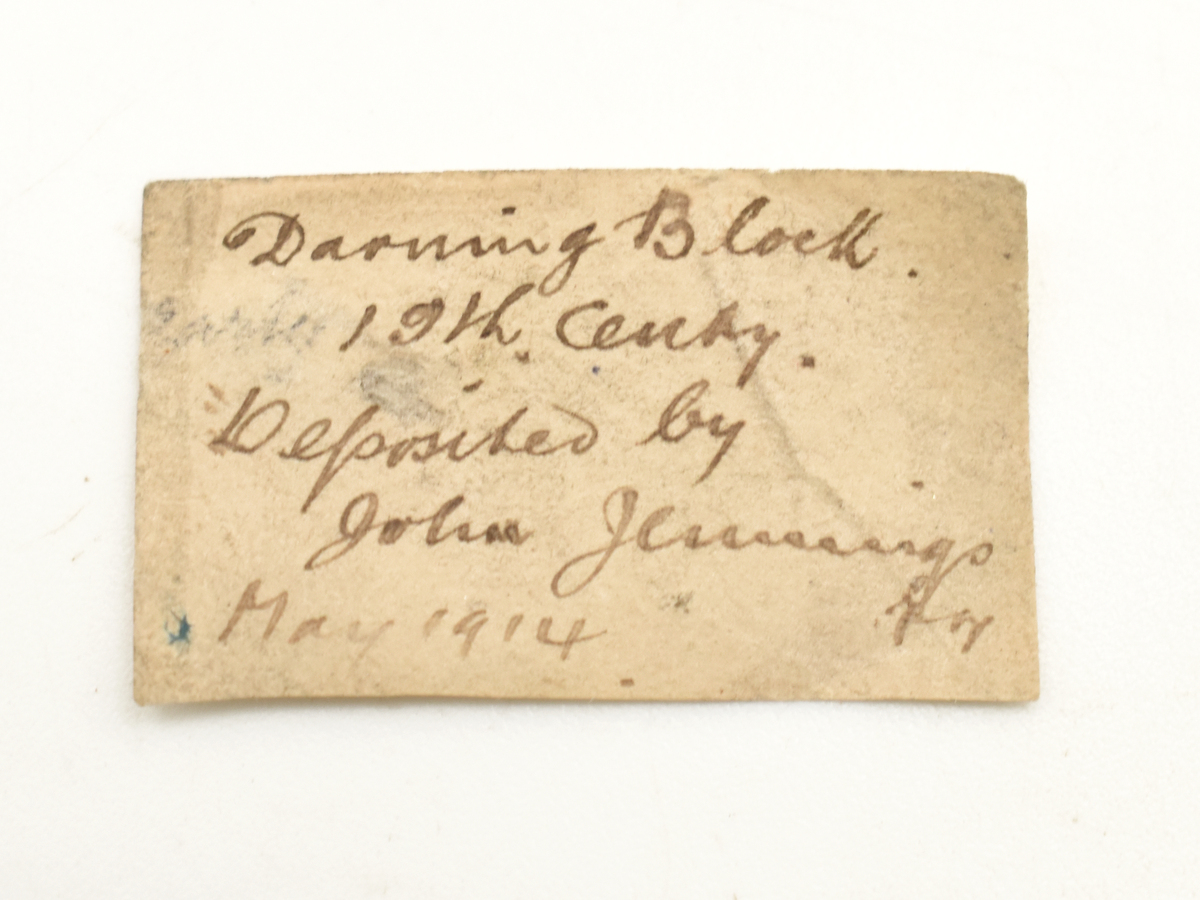 Darning Block.
19th. Centy.
Deposited by
John Jennings
May 1914